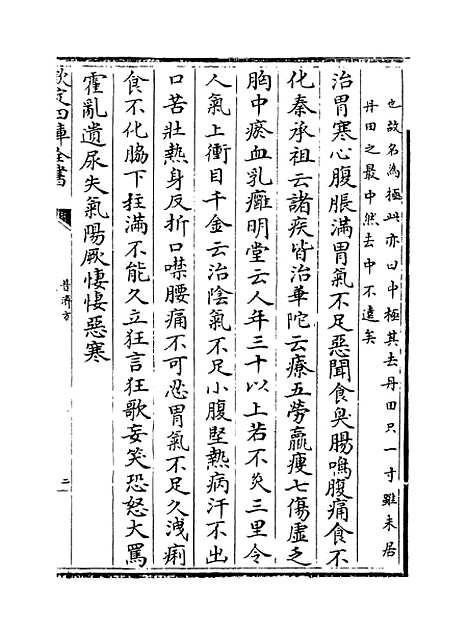 也故名為極此亦曰中極其去丹田只一寸雖未居
丹田之最中然去中不遠矣
治胃寒心腹脹滿胃氣不足惡聞食臭腸鳴腹痛食不
化秦承祖云諸疾皆治華陀云療五勞羸瘦七傷虛乏
胸中瘀血乳癰明堂云人年三十以上若不灸三里令
人氣上衝目千金云治陰氣不足小腹堅熱病汗不出
口苦壯熱身反折口噤腰痛不可忍胃氣不足久洩痢
食不化脇下拄滿不能久立狂言狂歌妄笑恐怒大罵
霍亂遺尿失氣陽厥悽悽惡寒
欽定四庫全書
普濟方
二